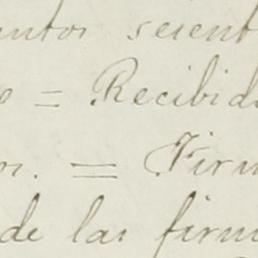 entos sesent
o = Recibid
os. = Firm
de las firm